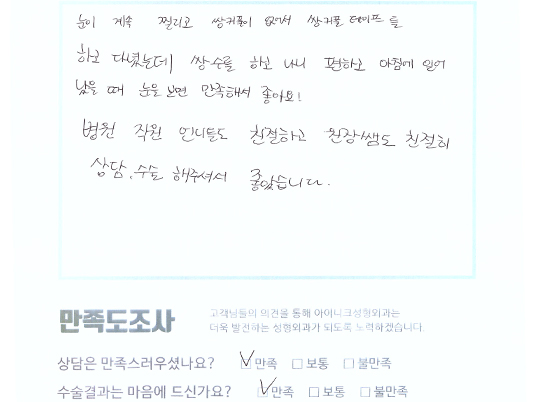 눈이 계속 찔리고 쌍커풀이 없어서 쌍커풀 테이프를
하고 다녔는데 쌍수를 하고 나니 편하고 아침에 일어
났을 때 눈을 보면 만족해서 좋아요!
병원 직원 언니들도 친절하고 원장쌤도 친절히
상담, 수술 해주셔서 좋았습니다.
만족도조사
고객님들의 의견을 통해 아이니크성형외과는
더욱 발전하는 성형외과가 되도록 노력하겠습니다.
상담은 만족스러우셨나요? ☑만족 □보통 □불만족
수술결과는 마음에 드신가요? ☑만족 □보통 □불만족